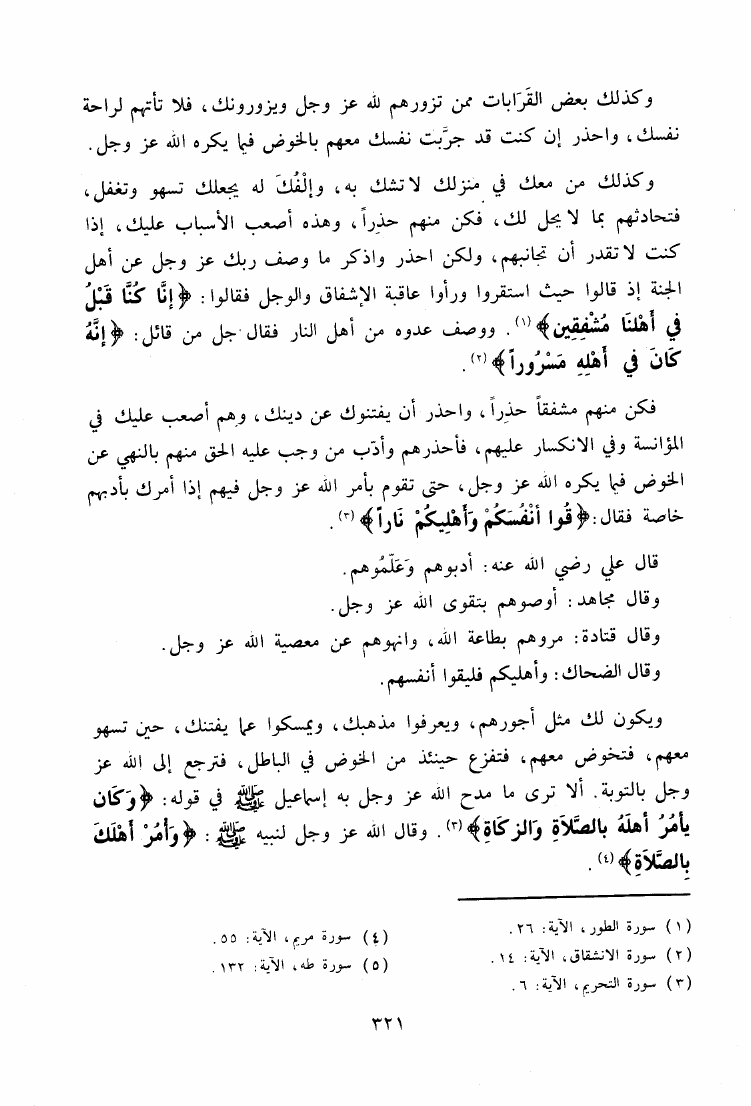 وكذلك بعض القَرَابات ممن تزورهم لله عز وجل ويزورونك، فلا تأتهم لراحة
نفسك، واحذر إن كنت قد جرَّبت نفسك معهم بالخوض فيما يكره الله عز وجل.
وكذلك من معك في منزلك لا تشك به، وإلْفُكَ له يجعلك تسهو وتغفل،
فتحادثهم بما لا يحل لك، فكن منهم حذراً، وهذه أصعب الأسباب عليك، إذا
كنت لا تقدر أن تجانبهم، ولكن احذر واذكر ما وصف ربك عز وجل عن أهل
الجنة إذ قالوا حيث استقروا ورأوا عاقبة الإشفاق والوجل فقالوا: ﴿إنَّا كُنَّا قَبْلُ
في أَهْلنَا مُشْفِقِين﴾(١). ووصف عدوه من أهل النار فقال جل من قائل: ﴿إنَّهُ
كَانَ في أَهْلِهِ مَسْرُوراً﴾(٢).
فكن منهم مشفقاً حذِراً، واحذر أن يفتنوك عن دينك، وهم أصعب عليك في
المؤانسة وفي الانكسار عليهم، فأحذرهم وأدّب من وجب عليه الحق منهم بالنهي عن
الخوض فيما يكره الله عز وجل، حتى تقوم بأمر الله عز وجل فيهم إذا أمرك بأدبهم
خاصة فقال: ﴿قُوا أنْفُسَكُمْ وَأَهْلِيكُمْ نَاراً﴾(٣).
قال علي رضي الله عنه: أدبوهم وَعَلّمُوهم.
وقال مجاهد: أوصوهم بتقوى الله عز وجل.
وقال قتادة: مروهم بطاعة الله، وانهوهم عن معصية الله عز وجل.
وقال الضحاك: وأهليكم فليقوا أنفسهم.
ويكون لك مثل أجورهم، ويعرفوا مذهبك، ويمسكوا عما يفتنك، حين تسهو
معهم، فتخوض معهم، فتفزع حينئذ من الخوض في الباطل، فترجع إلى الله عز
وجل بالتوبة. ألا ترى ما مدح الله عز وجل به إسماعيل ﷺ في قوله: ﴿وَكَان
يأمُرُ أهلَهُ بالصَّلاَةِ وَالزكَاةِ﴾(٣). وقال الله عز وجل لنبيه ﷺ: ﴿وَأْمُرْ أَهْلَكَ
بِالصَّلاَةِ﴾(٤).
(١) سورة الطور، الآية: ٢٦.
(٢) سورة الانشقاق، الآية: ١٤.
(٣) سورة التحريم، الآية: ٦.
(٤) سورة مريم، الآية: ٥٥.
(٥) سورة طه، الآية: ١٣٢.
٣٢١